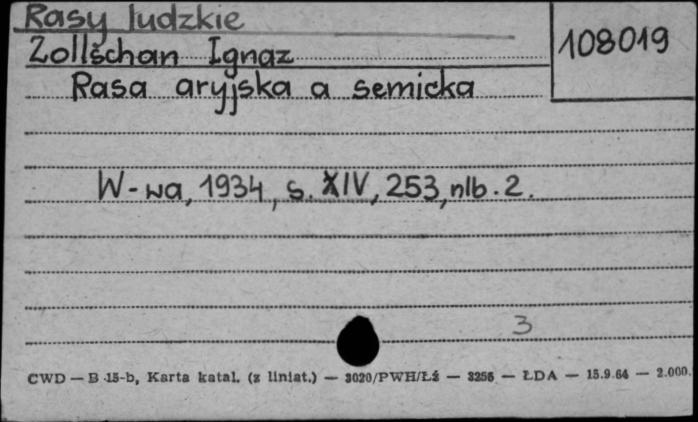 Rasy ludzkie
108019
Zollšchan Ignaz
Rasa aryjska a semicka
W-wa, 1934, s. XIV, 253, nlb. 2.
3
CWD — B-15-b, Karta katal. (z liniat.) — 3020/PWH/Łź — 3256 — ŁDA — 15.9.64 — 2.000.